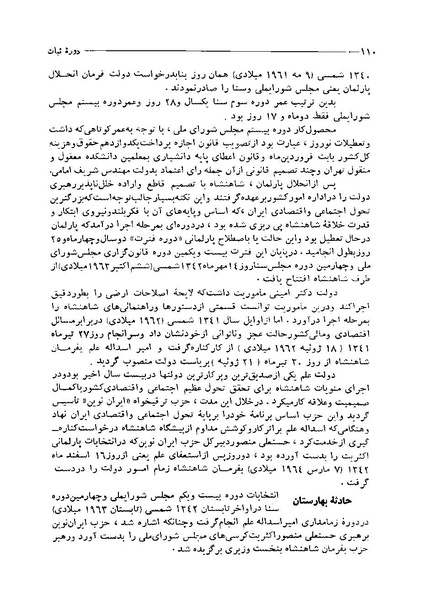 ۱۱۰ ــــــــــــــــــــــــــــــــــــــــ دورهٔ ثبات
۱۳۴۰ شمسی (۹ مه ۱۹۶۱ میلادی) همان روز بنابدرخواست دولت فرمان انحلال
پارلمان یعنی مجلس شورایملی وسنا را صادرنمودند .
بدین ترتیب عمر دوره سوم سنا یکسال و۲۸ روز وعمردوره بیستم مجلس
شورایملی فقط دوماه و ۱۷ روز بود .
محصول‌کار دوره بیستم مجلس شورای ملی ، با توجه به‌عمرکوتاهی‌که داشت
وتعطیلات نوروز ، عبارت بود ازتصویب قانون اجازه پرداخت یکدوازدهم‌حقوق‌وهزینه
کل‌کشور بابت فروردین‌ماه و قانون اعطای پایه دانشیاری بمعلمین دانشکده معقول و
منقول تهران وچند تصمیم قانونی ازآن جمله رای اعتماد بدولت مهندس شریف امامی.
پس ازانحلال پارلمان ، شاهنشاه با تصمیم قاطع واراده خلل‌ناپذیررهبری
دولت را دراداره امورکشوربرعهده‌گرفتند واین نکته‌بسیارجالب‌توجه‌است‌که‌بزرگترین
تحول اجتماعی واقتصادی ایران ،که اساس وپایه‌های آن با فکربلندونیروی ابتکار و
قدرت خلاقهٔ شاهنشاه پی ریزی شده بود ، دردوره‌ای بمرحله اجرا درآمدکه پارلمان
درحال تعطیل بود واین حالت یا باصطلاح پارلمانی «دوره فترت» دوسال‌وچهارماه‌و۲۵
روزبطول انجامید . درپایان این فترت بیست ویکمین دوره قانون‌گزاری مجلس‌شورای
ملی وچهارمین دوره مجلس‌سناروز۱۴مهرماه۱۳۴۲شمسی(ششم‌اکتبر۱۹۶۳میلادی)از
طرف شاهنشاه افتتاح یافت .
دولت دکتر امینی ماموریت داشت‌که لایحهٔ اصلاحات ارضی را بطوردقیق
اجراکند ودرین ماموریت توانست قسمتی ازدستورها وراهنمائی‌های شاهنشاه را
بمرحله اجرا درآورد . اما ازاوایل سال ۱۳۴۱ شمسی (۱۹۶۲ میلادی) دربرابرمسائل
اقتصادی ومالی‌کشورحالت عجز وناتوانی ازخودنشان داد وسرانجام روز۲۷ تیرماه
۱۳۴۱ ( ۱۸ ژوئیه ۱۹۶۲ میلادی ) از کارکناره‌گرفت و امیر اسداله علم بفرمان
شاهنشاه از روز ۳۰ تیرماه ( ۲۱ ژوئیه ) بریاست دولت منصوب گردید .
دولت علم یکی ازصدیق‌ترین وپرکارترین دولتها دربیست سال اخیر بودودر
اجرای منویات شاهنشاه برای تحقق تحول عظیم اجتماعی واقتصادی‌کشورباکمال
صمیمیت وعلاقه کارمیکرد . درخلال این مدت ، حزب ترقیخواه «ایران نوین» تأسیس
گردید واین حزب اساس برنامهٔ خودرا برپایهٔ تحول اجتماعی واقتصادی ایران نهاد
وهنگامی‌که اسداله علم براثرکاروکوشش مداوم ازپیشگاه شاهنشاه درخواست‌کناره‌ـ
گیری ازخدمت‌کرد ، حسنعلی منصوردبیرکل حزب ایران نوین‌که درانتخابات پارلمانی
اکثریت را بدست آورده بود ، دوروزپس ازاستعفای علم یعنی ازروز۱۶ اسفند ماه
۱۳۴۲ (۷ مارس ۱۹۶۴ میلادی) بفرمان شاهنشاه زمام امور دولت را دردست
گرفت .
حادثهٔ بهارستان
انتخابات دوره بیست ویکم مجلس شورایملی وچهارمین‌دوره
سنا دراواخرتابستان ۱۳۴۲ شمسی (تابستان ۱۹۶۳ میلادی)
دردورهٔ زمامداری امیراسداله علم انجام‌گرفت وچنانکه اشاره شد ، حزب ایران‌نوین
برهبری حسنعلی منصوراکثریت‌کرسی‌های مجلس شورای‌ملی را بدست آورد ورهبر
حزب بفرمان شاهنشاه بنخست وزیری برگزیده شد .